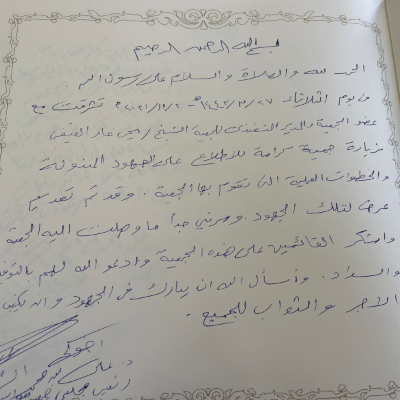 بسم الله الرحمن الرحيم
الحمد لله والصلاة والسلام على رسول الله
في يوم الثلاثاء ١٤٤٣/٣/٢٧هـ ٢٠٢١/١١/٢م تشرفت مع
عضو الجمعية والمدير التنفيذي للجمعية الشيخ
بزيارة جمعية كرامة للاطلاع على الجهود المبذولة
والخطوات العملية التي تقوم بها الجمعية . وقد تم تقديم
عرض لتلك الجهود . وسرني جداً ما وصلت اليه الجمعية
واشكر القائمين على هذه الجمعية وادعو الله لهم بالتوفيق
والسداد . وأسأل الله ان يبارك في الجهود وان يكتب
الاجر والثواب للجميع .
اخوكم
د. علي
رئيس مجلس